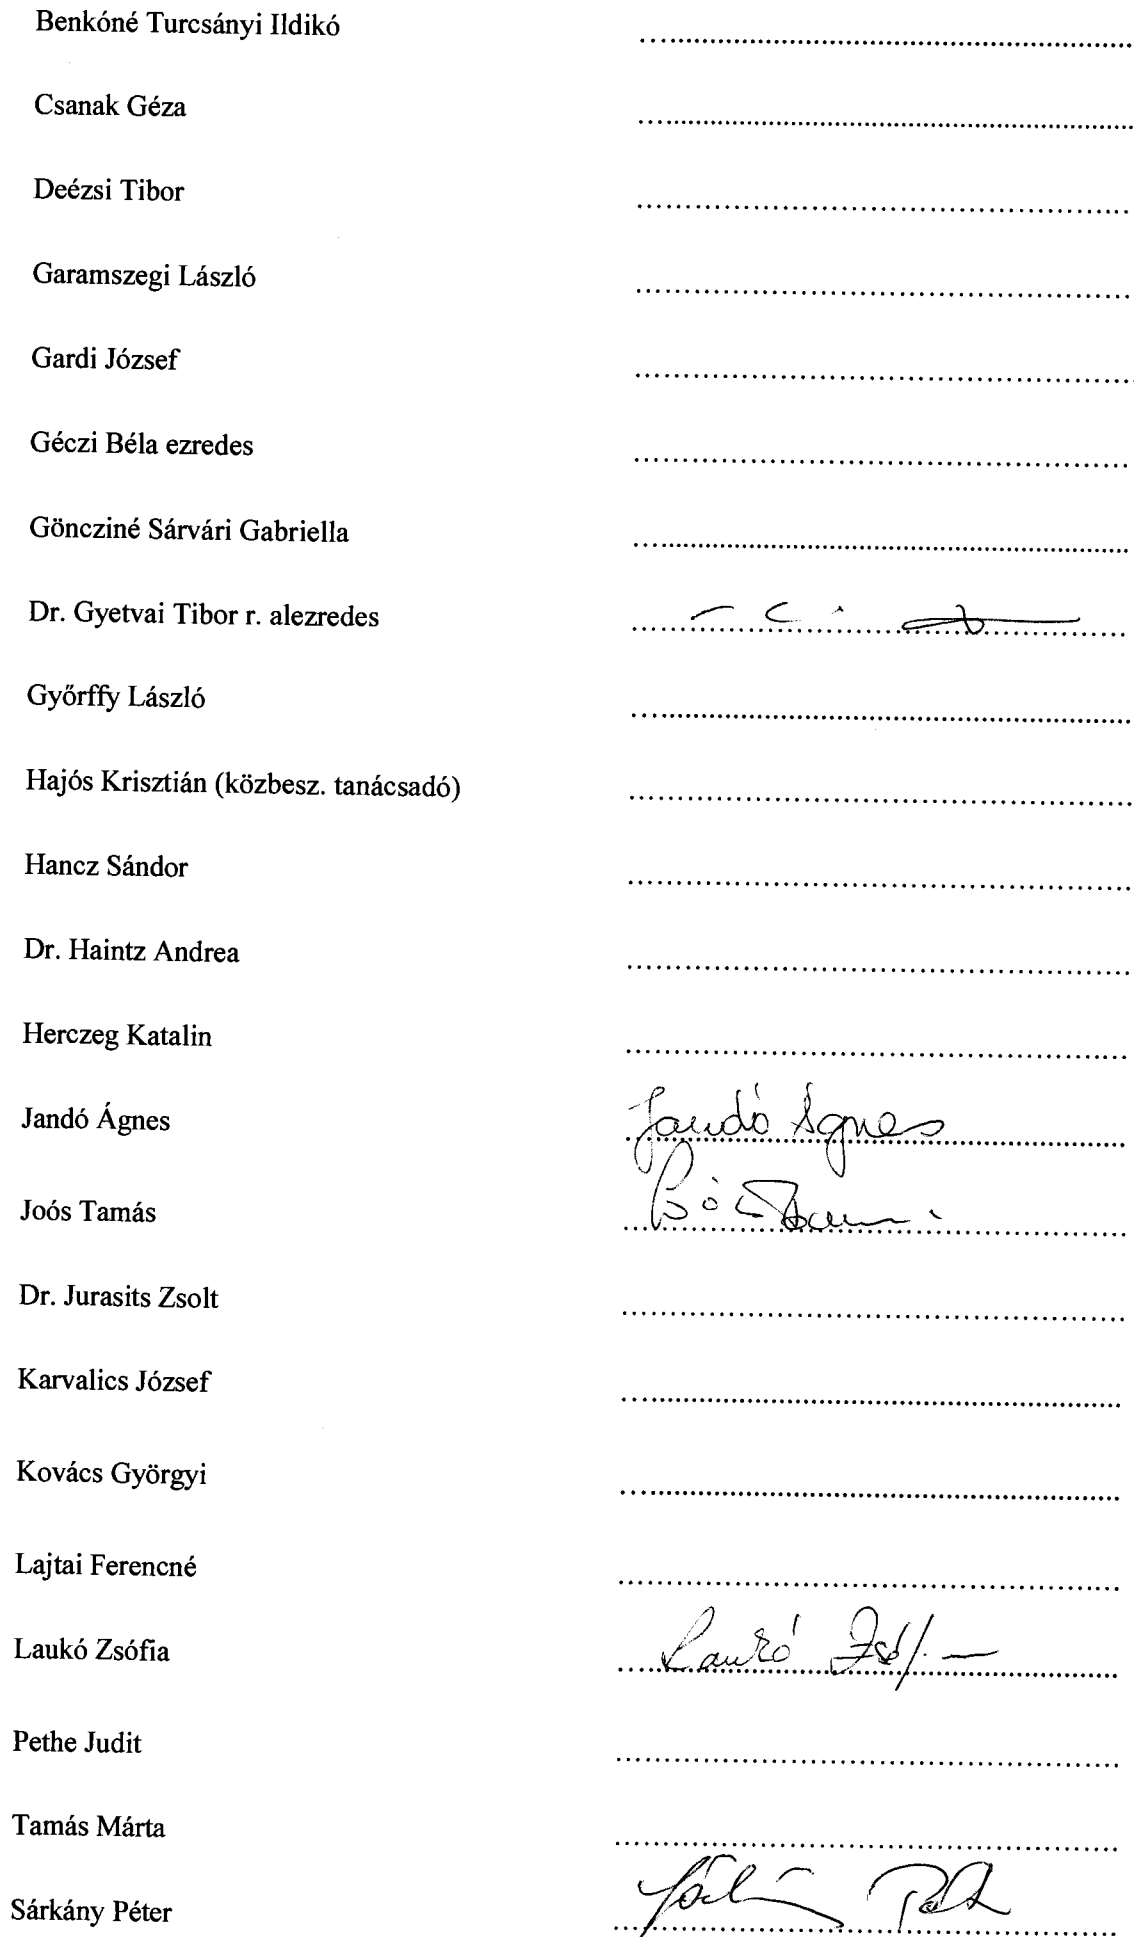 Benkóné Turcsányi Ildikó ........................................
Csanak Géza ........................................
Deézsi Tibor ........................................
Garamszegi László ........................................
Gardi József ........................................
Géczi Béla ezredes ........................................
Göncziné Sárvári Gabriella ........................................
Dr. Gyetvai Tibor r. alezredes ........................................
Győrffy László ........................................
Hajós Krisztián (közbesz. tanácsadó) ........................................
Hancz Sándor ........................................
Dr. Haintz Andrea ........................................
Herczeg Katalin ........................................
Jandó Ágnes Jandó Ágnes
Joós Tamás ........................................
Dr. Jurasits Zsolt ........................................
Karvalics József ........................................
Kovács Györgyi ........................................
Lajtai Ferencné ........................................
Laukó Zsófia Laukó Zsóf
Pethe Judit ........................................
Tamás Márta ........................................
Sárkány Péter ........................................